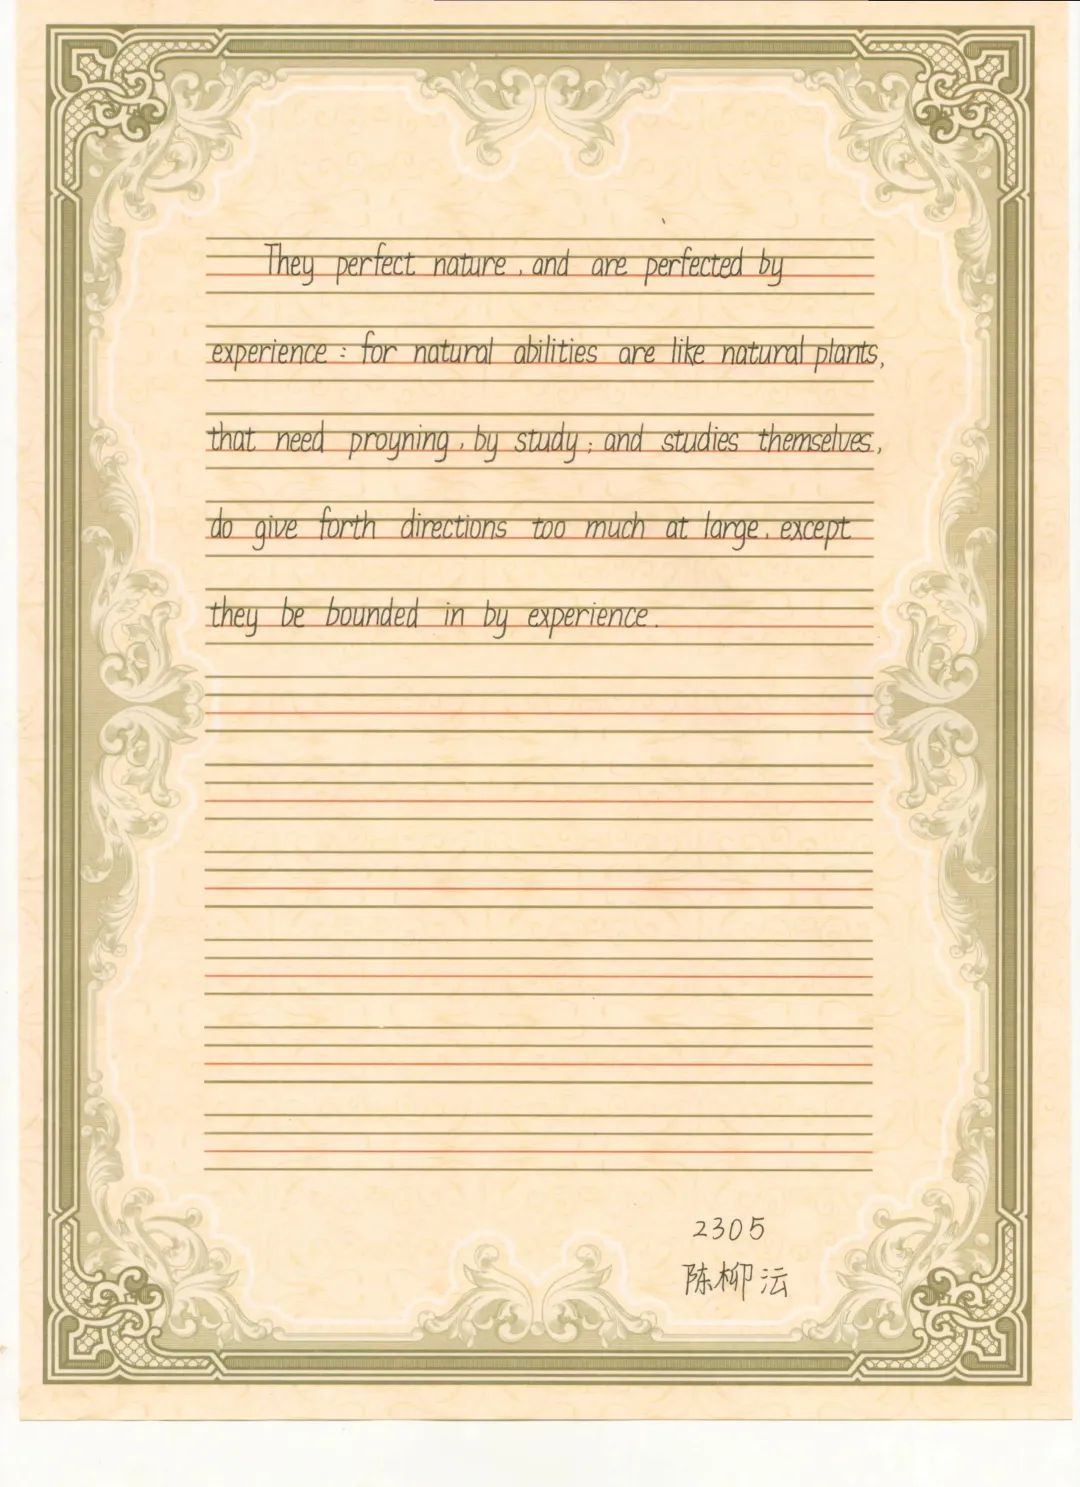 They perfect nature, and are perfected by
experience: for natural abilities are like natural plants,
that need proyning, by study; and studies themselves,
do give forth directions too much at large, except
they be bounded in by experience.
2305
陈柳沄